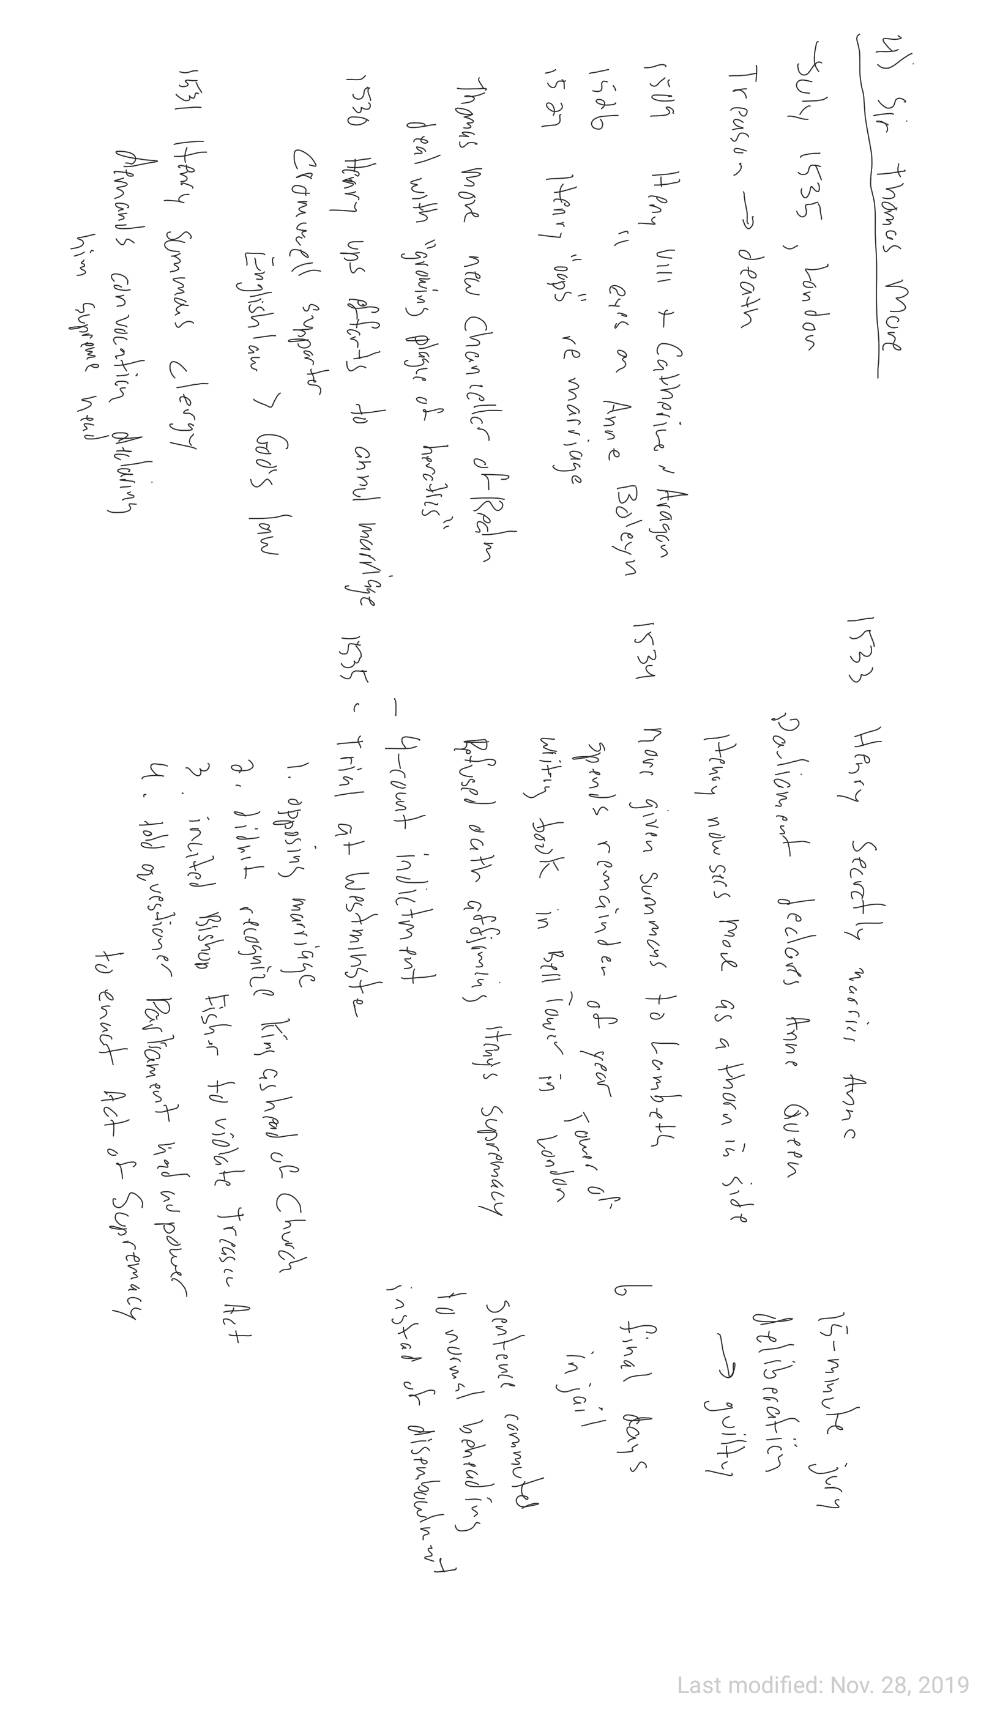 4) Sir Thomas More
July 1535, London
Treason → death
1509 Henry VIII + Catherine v Aragon
1526 " eyes on Anne Boleyn
1527 Henry "oops" re marriage
Thomas More new Chancellor of Realm
deal with "growing plague of heretics"
1530 Henry ups efforts to annul marriage
Cromwell supporter
English law > God's law
1531 Henry summons clergy
demands convocation declaring
him supreme head
1533 Henry secretly marries Anne
Parliament declares Anne Queen
Henry now sees More as a thorn in side
1534 More given summons to Lambeth
spends remainder of year
writing book in Bell Tower in Tower of
London
Refused oath affirming Henry's supremacy
- 4-count indictment
1535 - Trial at Westminster
1. opposing marriage
2. didn't recognize King as head of Church
3. incited Bishop Fisher to violate Treason Act
4. told questioner Parliament had no power
to enact Act of Supremacy
15-minute jury
deliberation
→ guilty
6 final days
in jail
sentence commuted
to normal beheading
instead of disembowelment
Last modified: Nov. 28, 2019